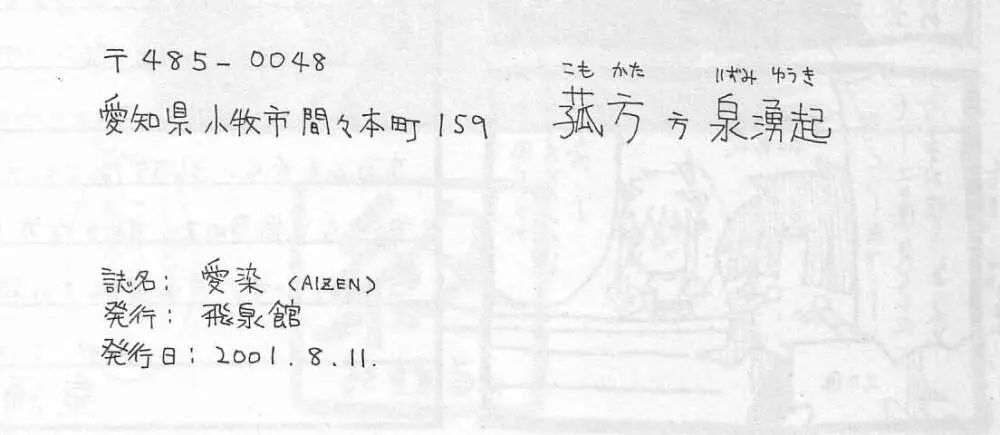 〒485-0048
こもかた いずみゆうき
愛知県小牧市間々本町159 菰方方泉湧起
誌名：愛染（AIZEN）
発行：飛泉館
発行日：2001.8.11.